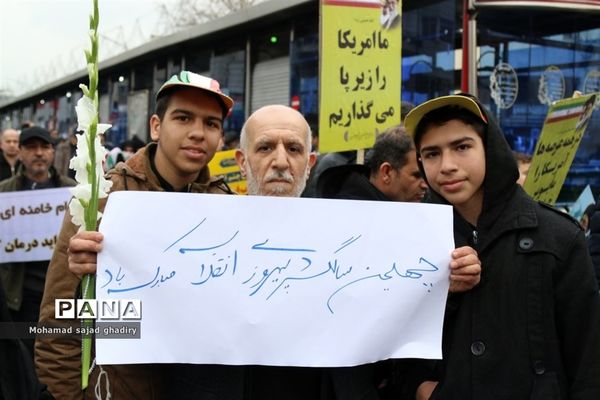 ما امریکا
را زیر پا
می گذاریم
ام خامنه ای
اید درمان
چهلمین سالگرد پیروزی انقلاب مبارک باد
PANA
Mohamad sajad ghadiry